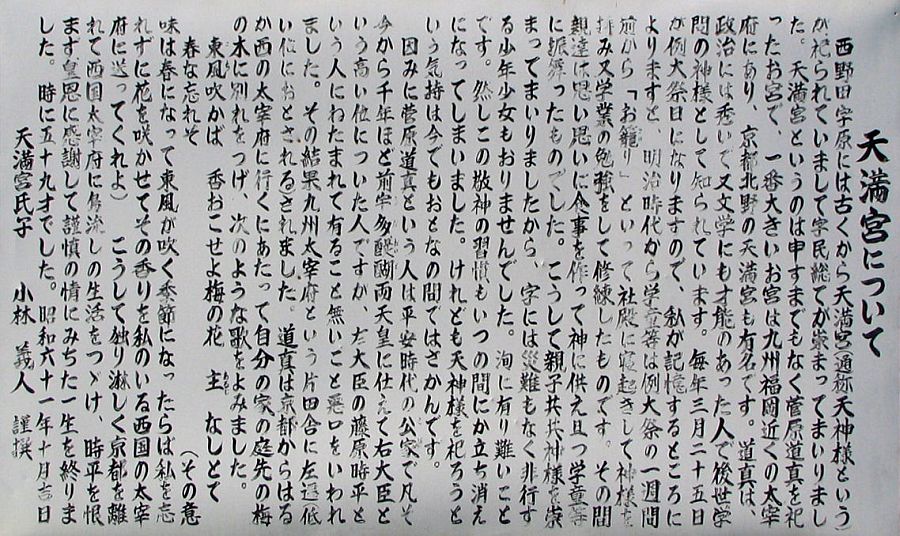 天満宮について
西野田字原には古くから天満宮(通称天神様という)
が祀られていまして字民総てが崇まってまいりまし
た。天満宮というのは申すまでもなく菅原道真を祀
ったお宮で、一番大きいお宮は九州福岡近くの太宰
府にあり、京都北野の天満宮も有名です。道真は、
政治には秀いで又文学にも才能のあった人で後世学
問の神様として知られています。毎年三月二十五日
が例大祭日になりますので、私が記憶するところに
よりますと、明治時代から学童等は例大祭の一週間
前から「お籠り」といって社殿に寝起きして神様を
拝み又学業の勉強をして修練したものです。その間
親達は思い思いに食事を作って神に供え且つ学童等
に振舞ったものでした。こうして親子共共神様を崇
まってまいりましたから、字には災難もなく非行す
る少年少女もおりませんでした。洵に有り難いこと
です。然しこの敬神の習慣もいつの間にか立ち消え
になってしまいました。けれども天神様を祀ろうと
いう気持は今でもおとなの間ではさかんです。
因みに菅原道真という人は平安時代の公家で凡そ
今から千年ほど前宇多醍醐両天皇に仕えて右大臣と
いう高い位についた人ですが、左大臣の藤原時平と
いう人にねたまれて有ること無いこと悪口をいわれ
ました。その結果九州太宰府という片田舎に左遷(低
い位におとされる)されました。道真は京都からはる
か西の太宰府に行くにあたって自分の家の庭先の梅
の木に別れをつげ、次のような歌をよみました。
東風吹かば 香おこせよ梅の花 主なしとて
春な忘れそ (その意
味は春になって東風が吹く季節になったらば私を忘
れずに花を咲かせてその香りを私のいる西国の太宰
府に送ってくれよ) こうして独り淋しく京都を離
れて西国太宰府に島流しの生活をつゞけ、時平を恨
まず皇恩に感謝して謹慎の情にみちた一生を終りま
した。時に五十九才でした。昭和六十一年十月吉日
天満宮氏子 小林 義人 謹撰